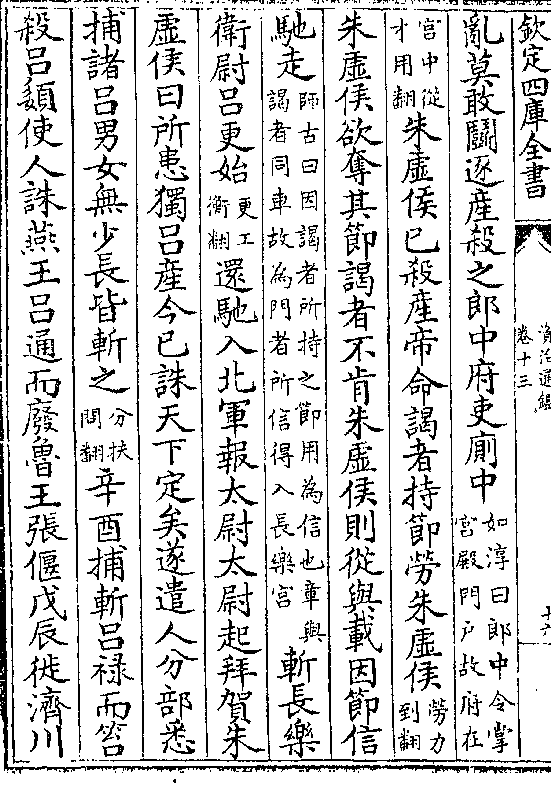 欽定四庫全書
資治通鑑
卷十三
十六
亂莫敢鬭逐產殺之郎中府吏廁中如淳曰郎中令掌宮殿門戶故府在
宮中從才用翻朱虛侯已殺產帝命謁者持節勞朱虛侯勞力到翻
朱虛侯欲奪其節謁者不肯朱虛侯則從與載因節信
馳走師古曰因謁者所持之節用為信也章與謁者同車故為門者所信得入長樂宮斬長樂
衛尉呂更始更工衡翻還馳入北軍報太尉太尉起拜賀朱
虛侯曰所患獨呂產今已誅天下定矣遂遣人分部悉
捕諸呂男女無少長皆斬之分扶問翻辛酉捕斬呂祿而笞
殺呂嬃使人誅燕王呂通而廢魯王張偃戊辰徙濟川